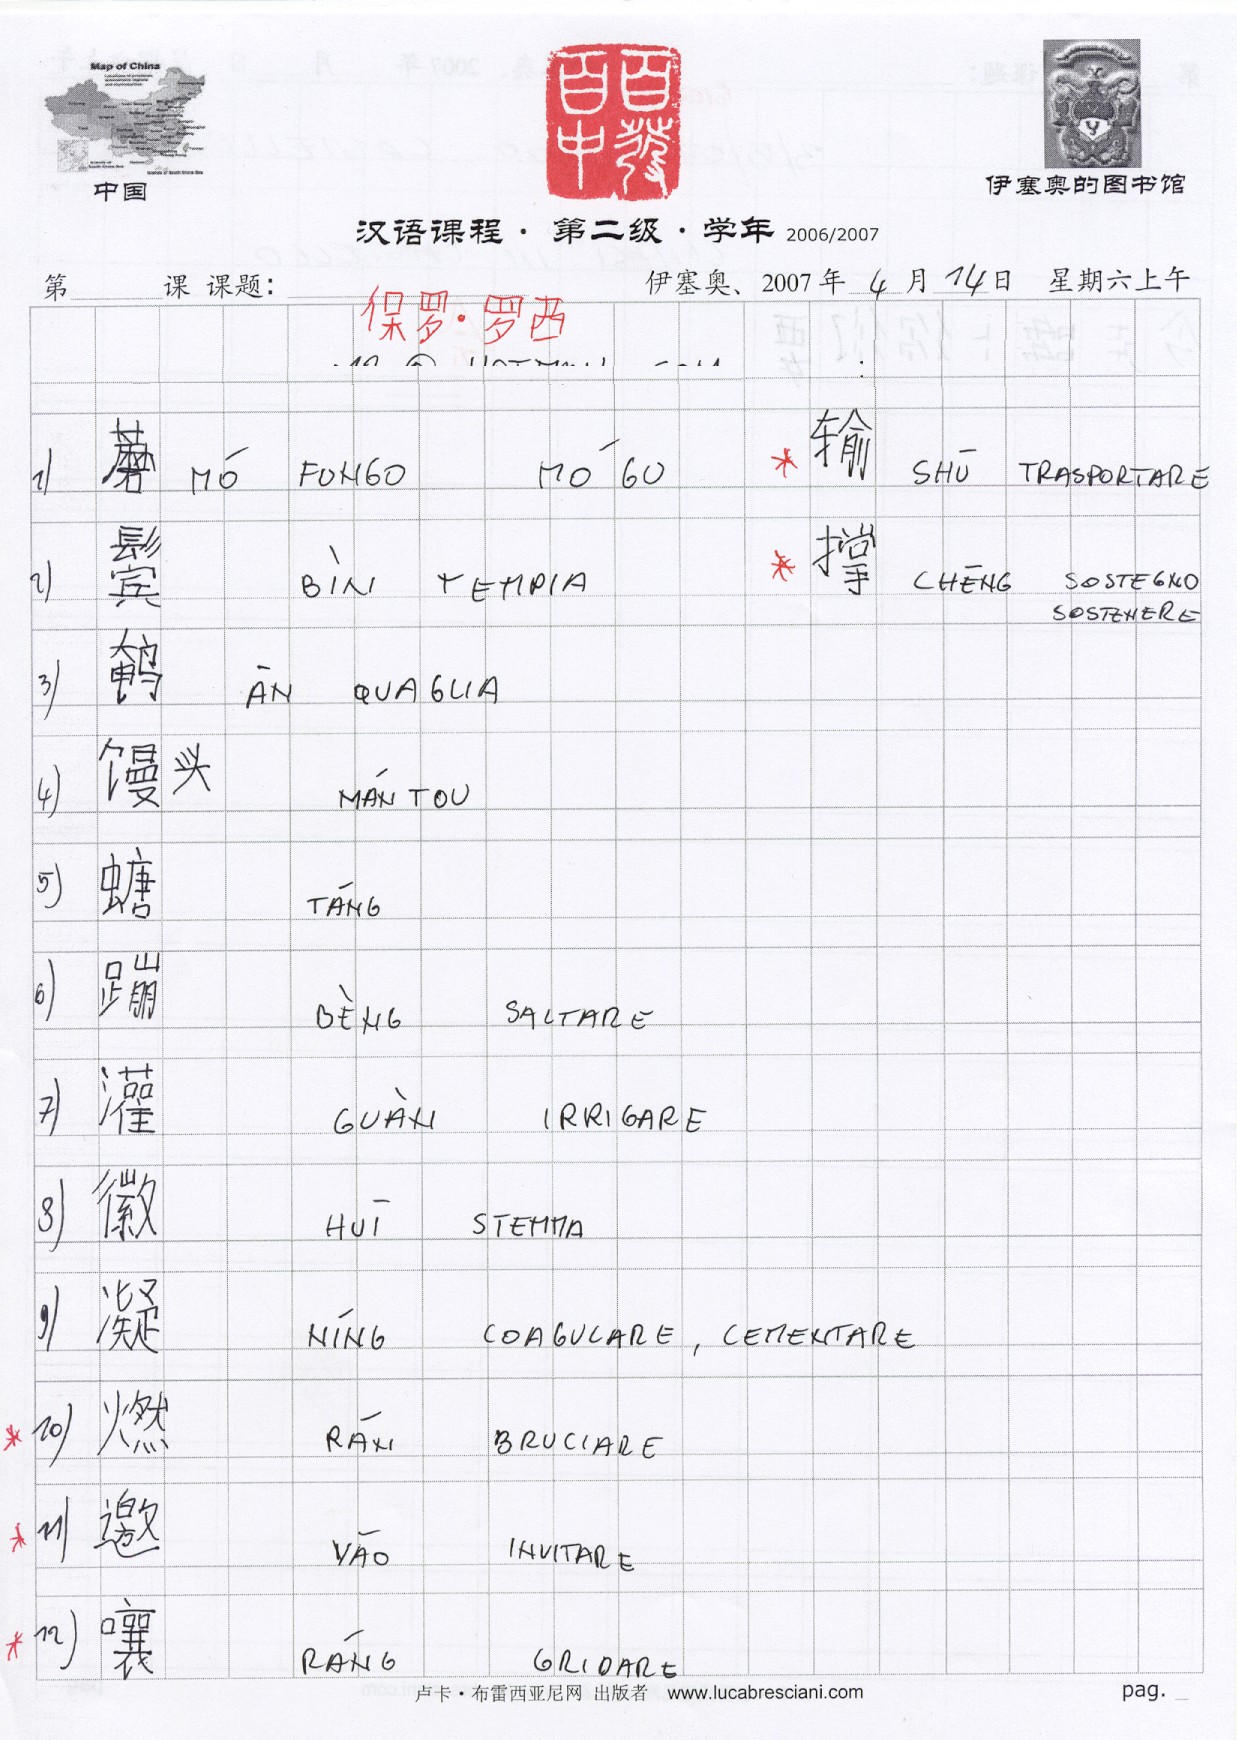 Map of China
中国
百發
百中
伊塞奥的图书馆
汉语课程·第二级·学年 2006/2007
第 课 课题:
伊塞奥、2007 年 4 月 14 日 星期六上午
保罗·罗西
1) 蘑 MÓ FUNGO MÓ GU
* 输 SHŪ TRASPORTARE
2) 鬓 BÌN TEMPIA
* 撑 CHĒNG SOSTEGNO
SOSTENERE
3) 鹌 ĀN QUAGLIA
4) 馒头 MÁN TOU
5) 螗 TÁNG
6) 蹦 BÈNG SALTARE
7) 灌 GUÀN IRRIGARE
8) 徽 HUĪ STEMMA
9) 凝 NÍNG COAGULARE, CEMENTARE
* 10) 燃 RÁN BRUCIARE
* 11) 邀 YĀO INVITARE
* 12) 嚷 RÁNG GRIDARE
卢卡·布雷西亚尼网 出版者 www.lucabresciani.com
pag. _